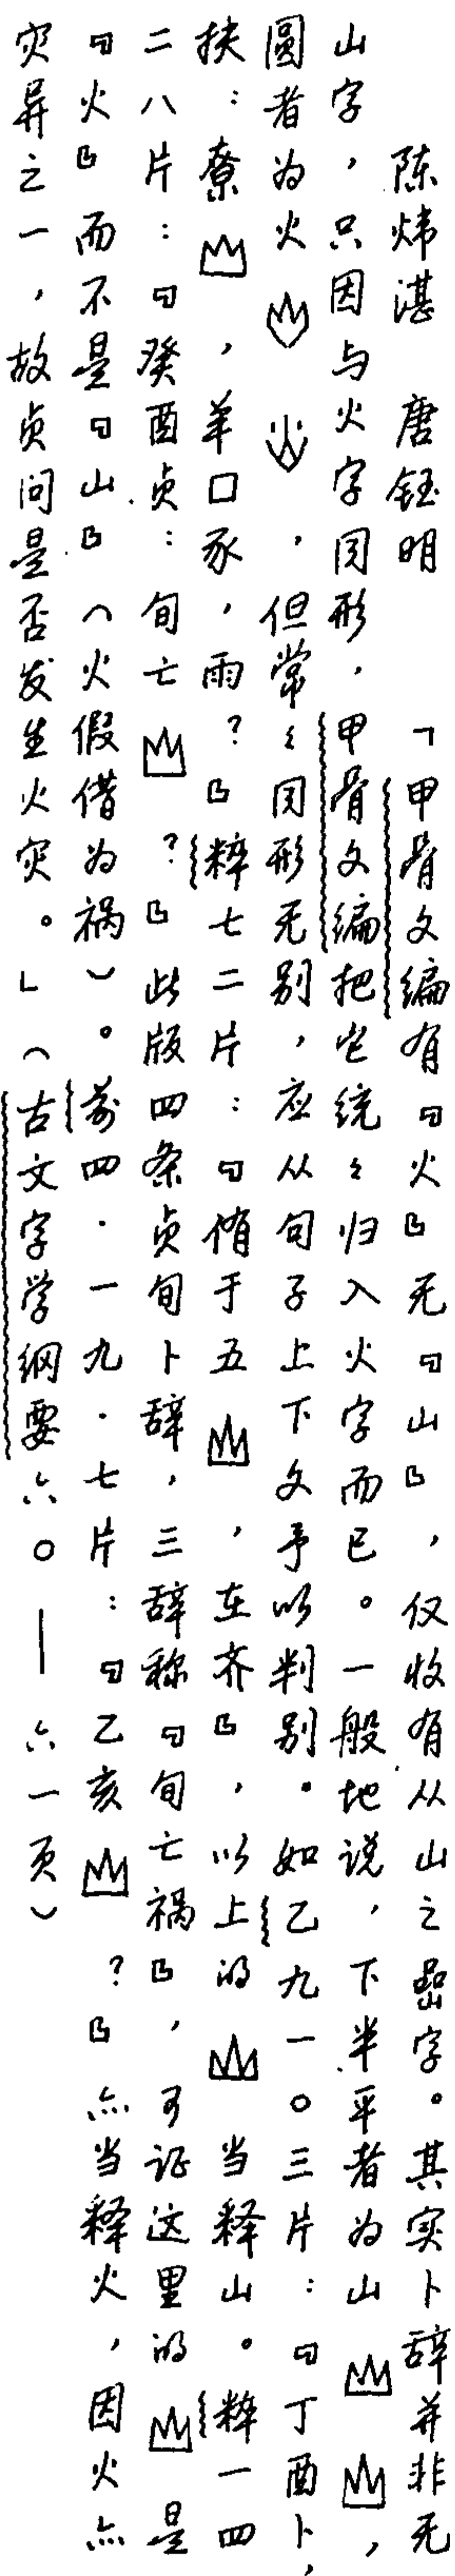 陈炜湛　唐钰明　「甲骨文编有『火』无『山』，仅收有从山之嵒字。其实卜辞并非无
山字，只因与火字同形，甲骨文编把它统々归入火字而已。一般地说，下半平者为山，
圆者为火，但常々同形无别，应从句子上下文予以判别。如乙九一〇三片：『丁酉卜，
扶：尞，羊□豕，雨？』粹七二片：『侑于五，在齐』，以上的当释山。粹一四
二八片：『癸酉贞：旬亡？』此版四条贞旬卜辞，三辞称『旬亡祸』，可证这里的是
『火』而不是『山』（火假借为祸）。前四·一九·七片：『乙亥？』亦当释火，因火亦
灾异之一，故贞问是否发生火灾。」（古文字学纲要六〇—六一页）